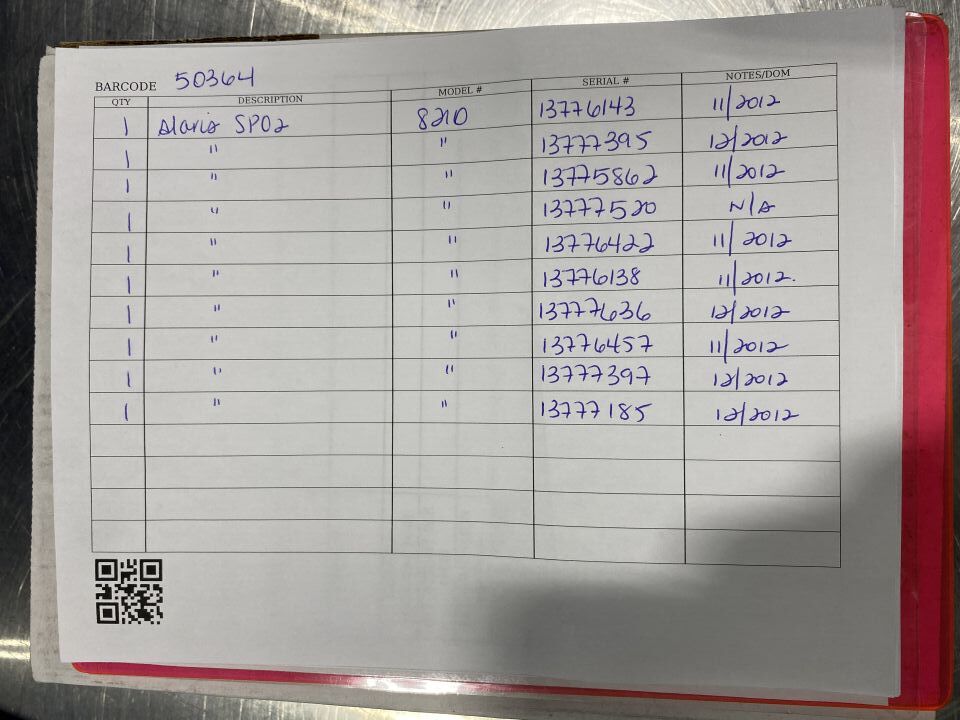 BARCODE 50364
QTY DESCRIPTION MODEL # SERIAL # NOTES/DOM
1 Alaris SPO2 8210 13776143 11/2012
1 " " 13777395 12/2012
1 " " 13775862 11/2012
1 " " 13777520 N/A
1 " " 13776422 11/2012
1 " " 13776138 11/2012.
1 " " 13777636 12/2012
1 " " 13776457 11/2012
1 " " 13777397 12/2012
1 " " 13777185 12/2012